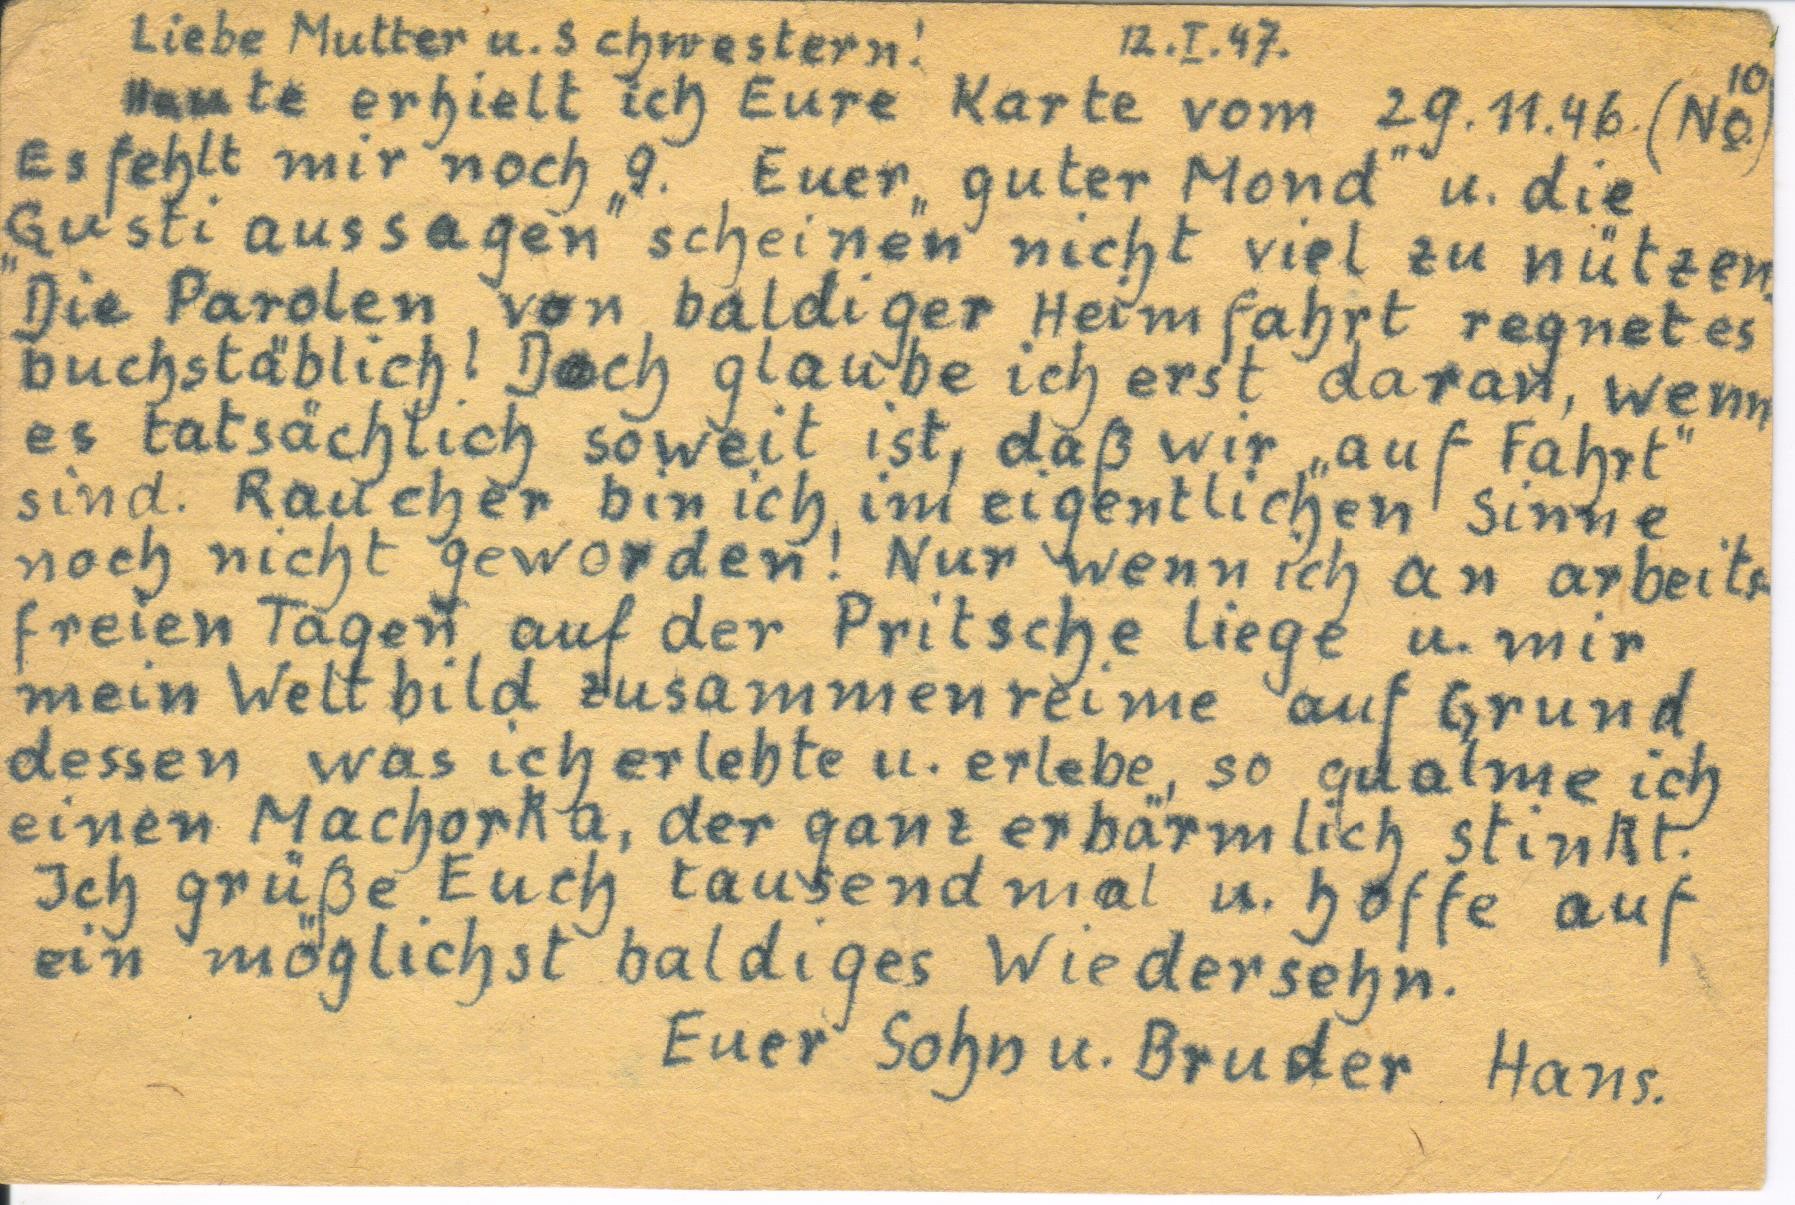 Liebe Mutter u. Schwestern! 12.I.47.
Heute erhielt ich Eure Karte vom 29.11.46. (No. 10)
Es fehlt mir noch 9. Euer „guter Mond" u. die
„Gusti aussagen" scheinen nicht viel zu nützen.
Die Parolen von baldiger Heimfahrt regnet es
buchstäblich! Doch glaube ich erst daran, wenn
es tatsächlich soweit ist, daß wir „auf Fahrt"
sind. Raucher bin ich im eigentlichen Sinne
noch nicht geworden! Nur wenn ich an arbeits-
freien Tagen auf der Pritsche liege u. mir
mein Weltbild zusammenreime auf Grund
dessen was ich erlebte u. erlebe, so qualme ich
einen Machorka, der ganz erbärmlich stinkt.
Ich grüße Euch tausendmal u. hoffe auf
ein möglichst baldiges Wiedersehn.
Euer Sohn u. Bruder Hans.